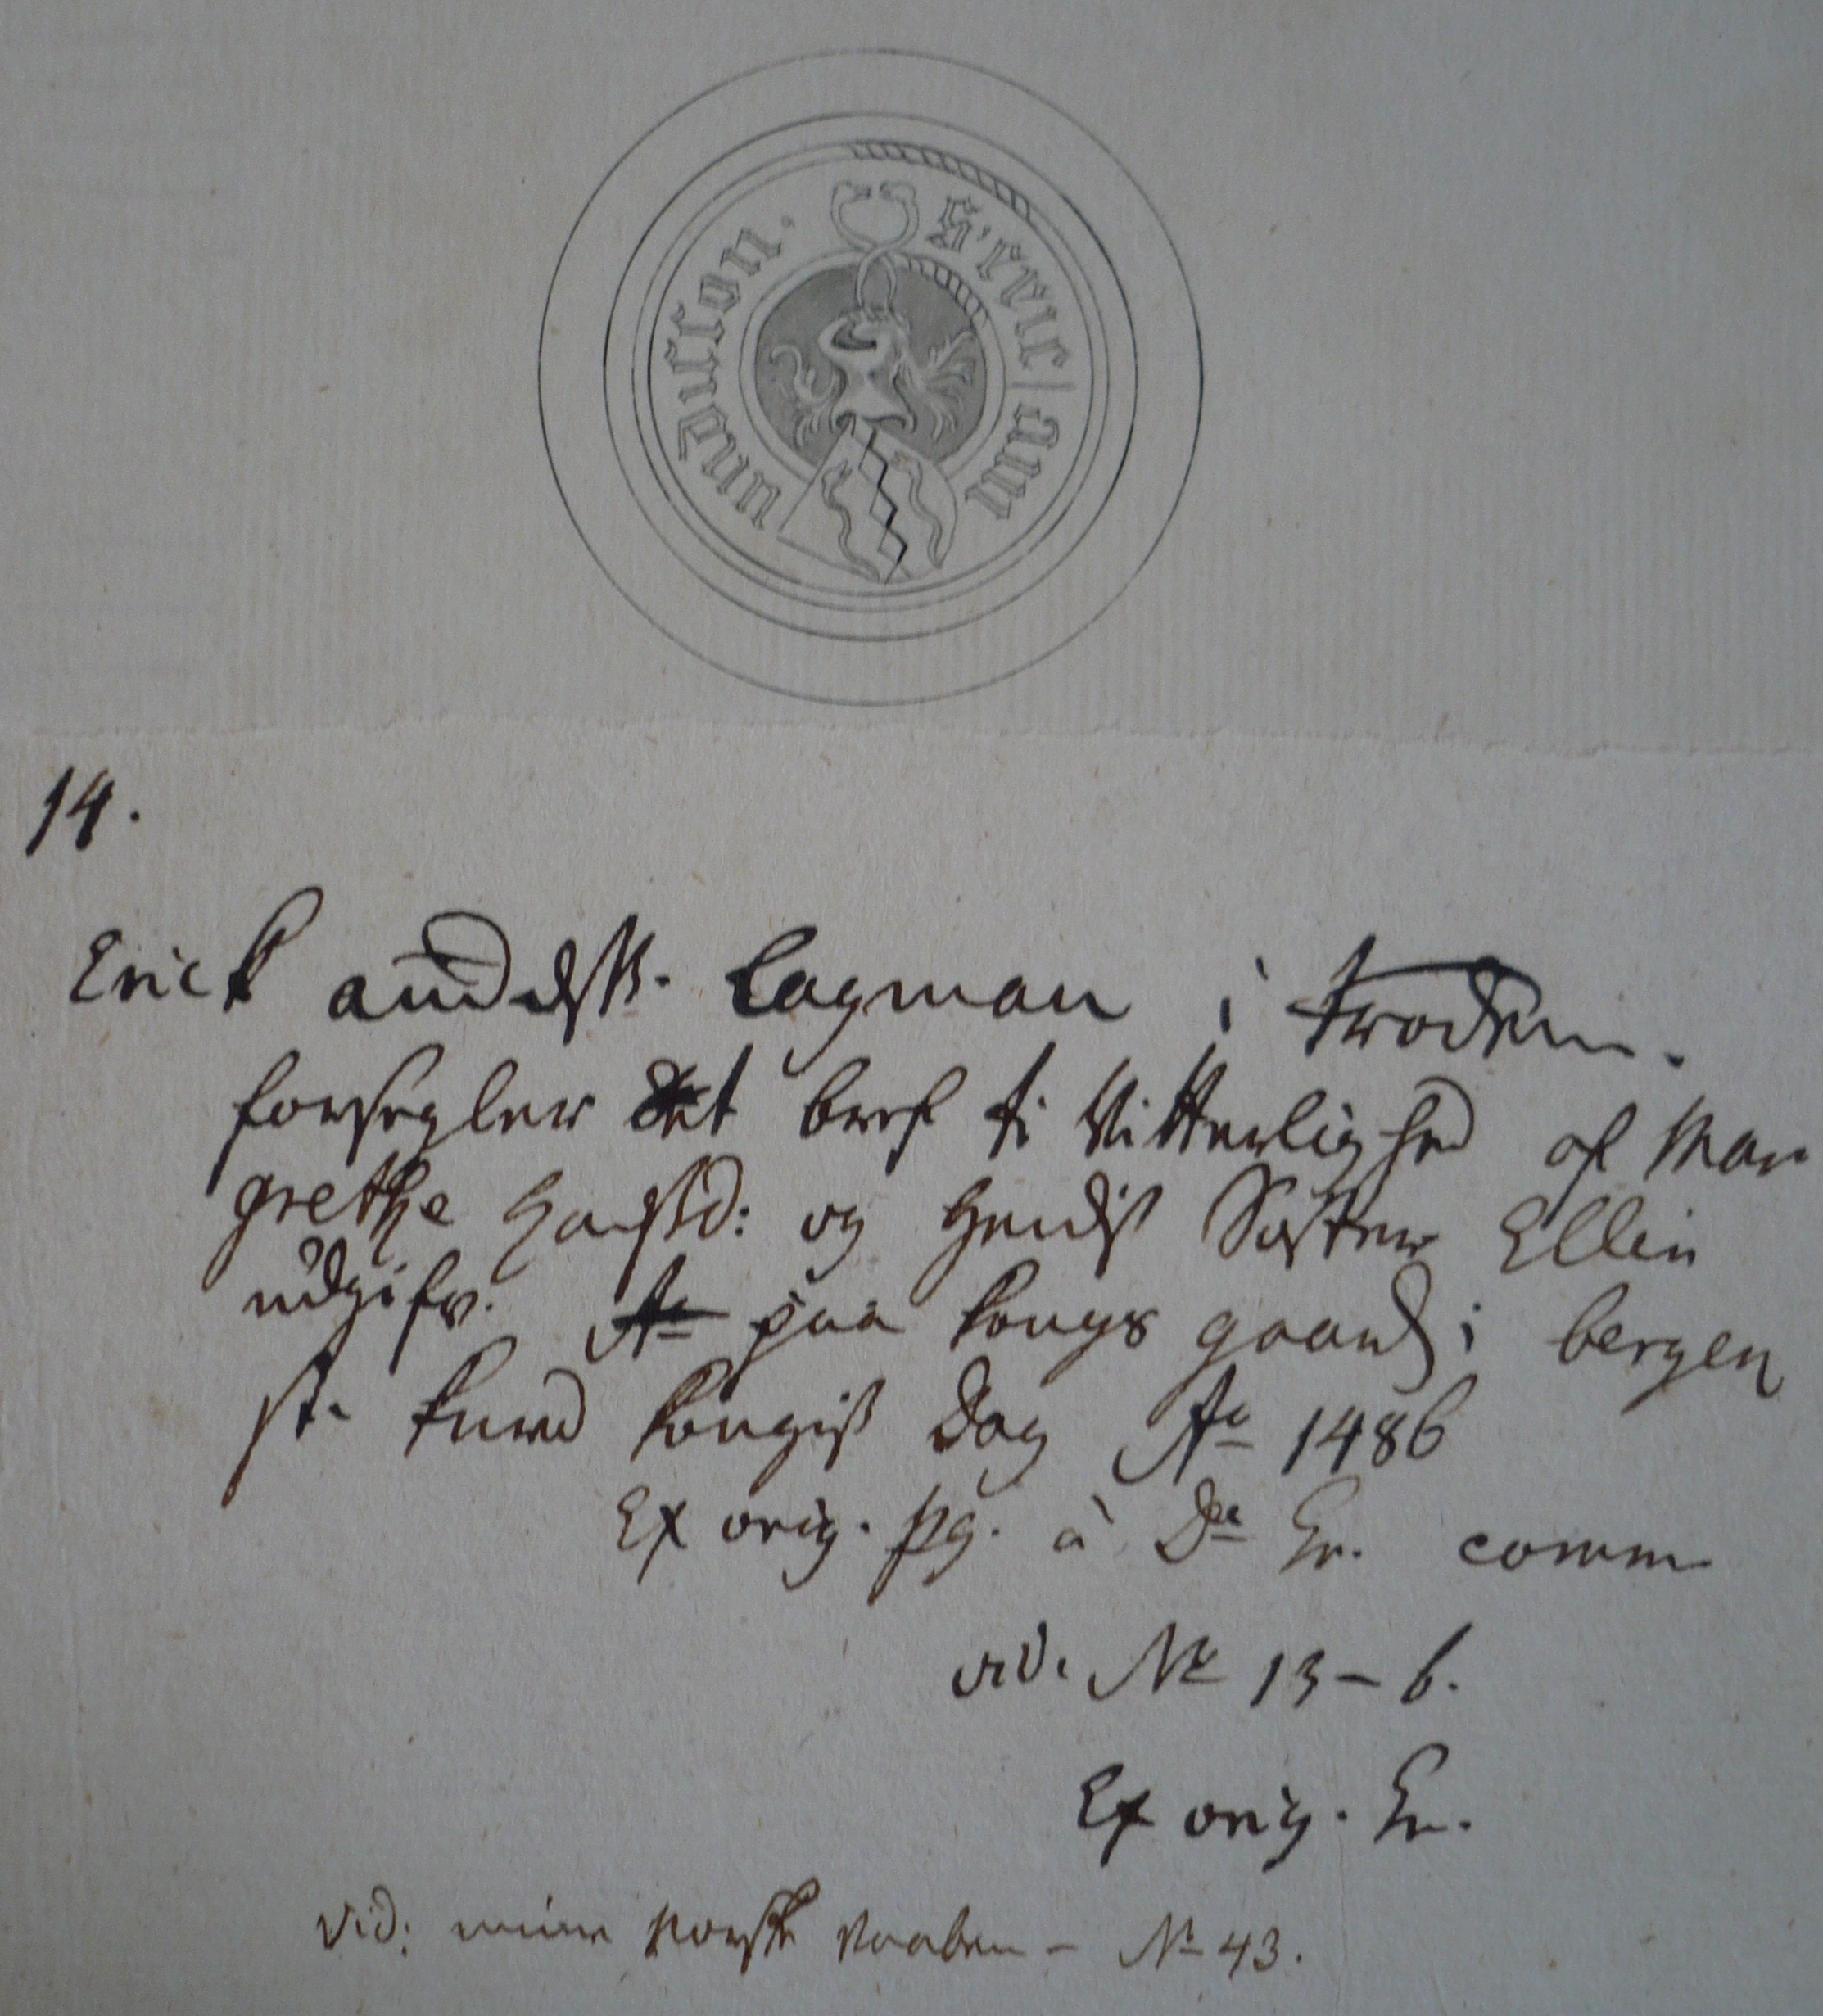 S' eric amundsson.
14.
Erick amūdsß. Lagman i Trodem.
forsegler et bref ti Vitterlighed af Mar
grethe Hansd: og Hendis Søster Ellin
udgifv. paa kongs gaard i bergen
st. knud kongis dag Ao 1486
Ex orig. pg. à Do Gr. comm
vid. No 13 - b.
Ex orig. Gr.
vid: mine norske Vaaben - No 43.